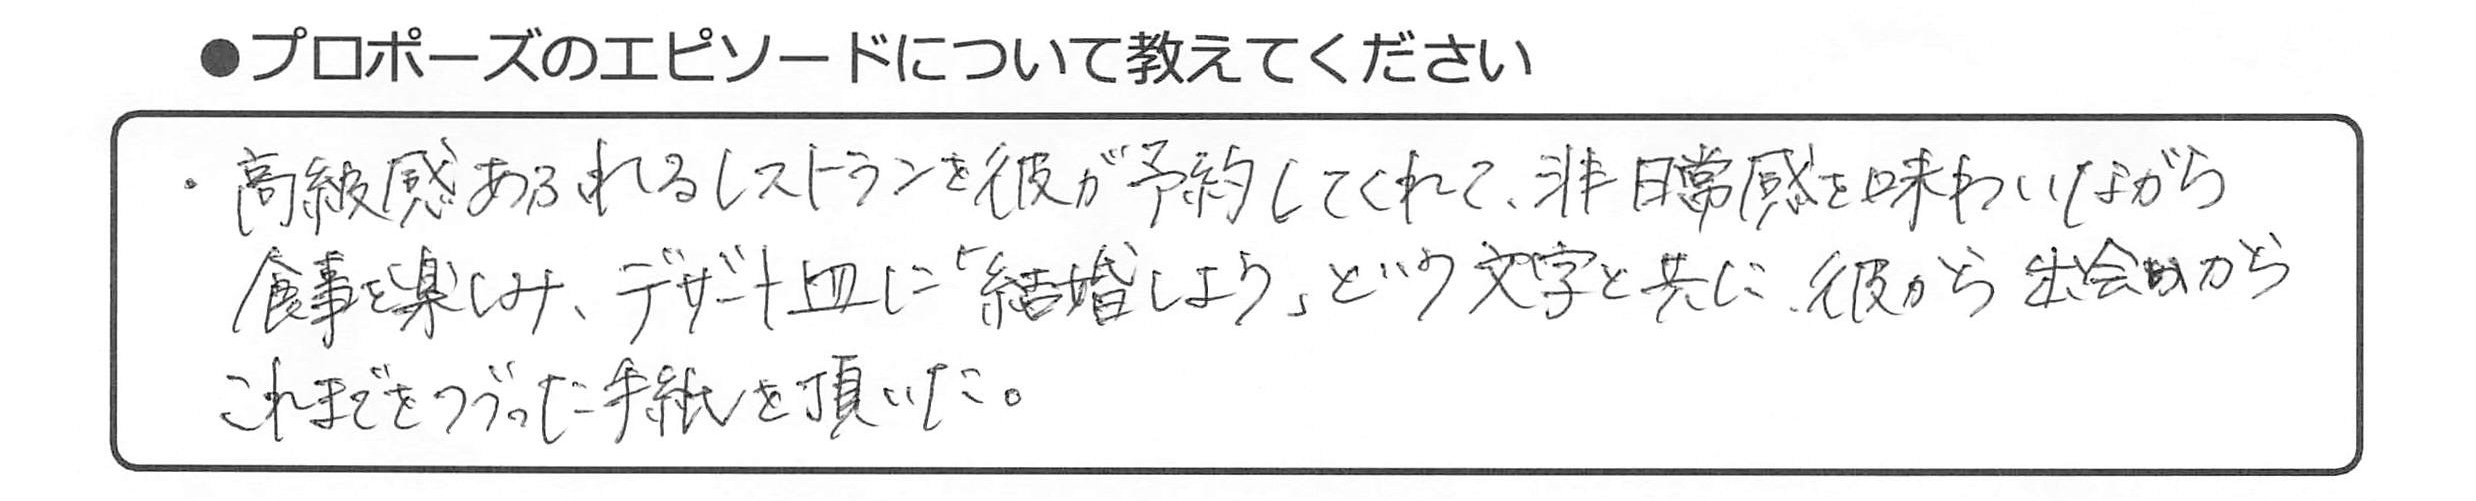 ●プロポーズのエピソードについて教えてください
・高級感あふれるレストランを彼が予約してくれて、非日常感を味わいながら
食事を楽しみ、デザート皿に「結婚しよう」という文字と共に、彼から出会いから
これまでをつづった手紙を頂いた。